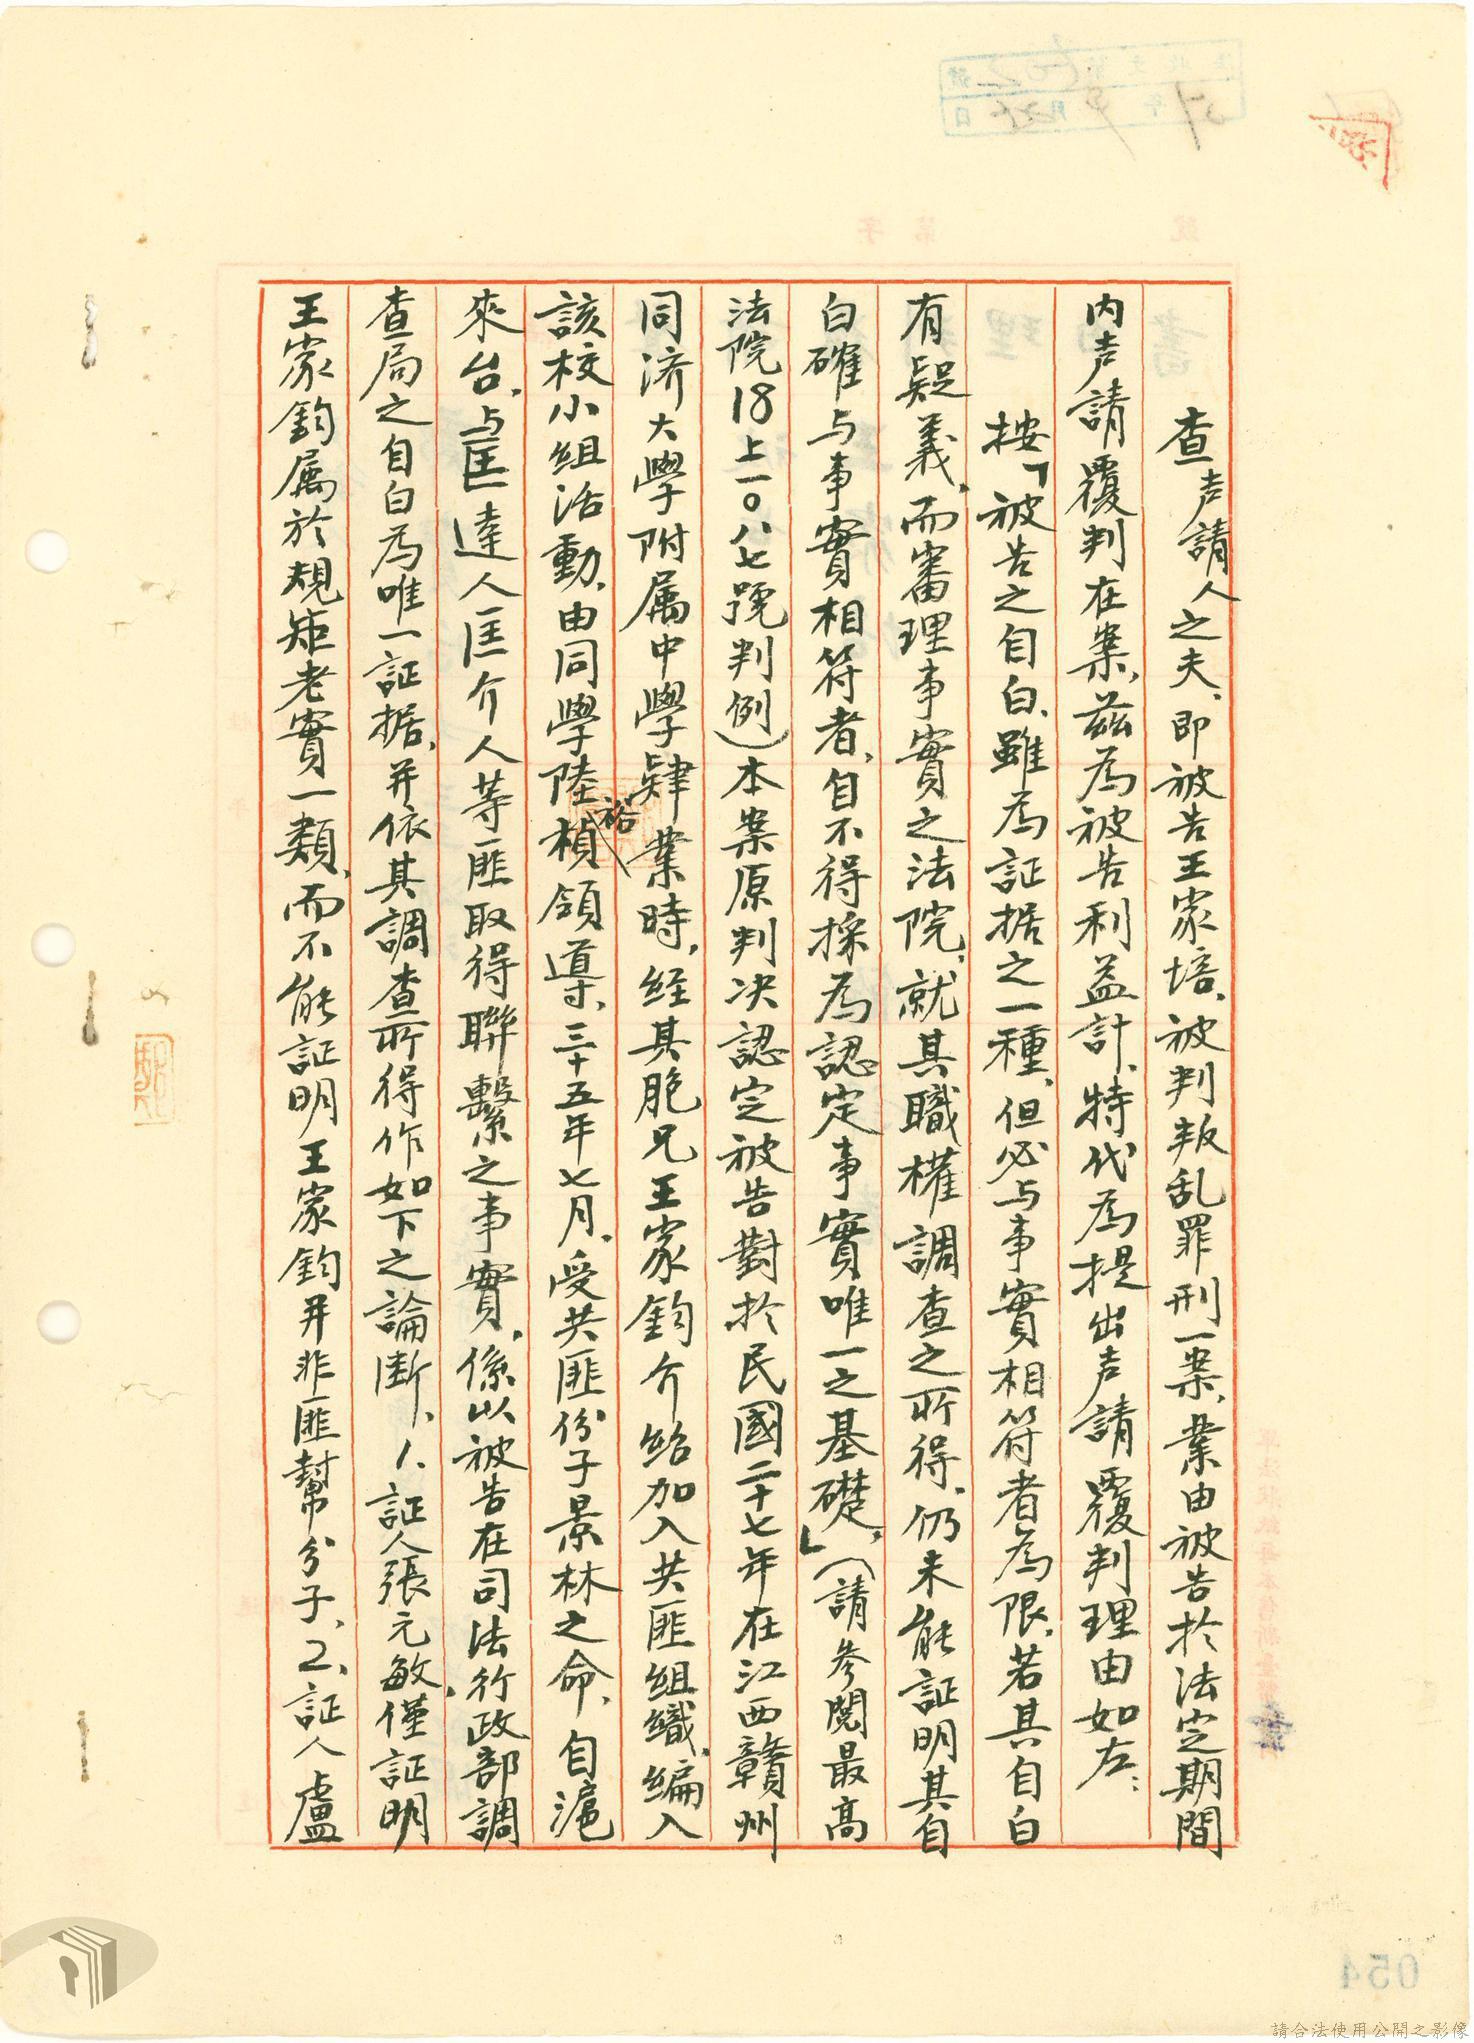 查声請人之夫、即被告王家培、被判叛乱罪刑一案、業由被告於法定期間
内声請覆判在案、茲為被告利益計、特代為提出声請覆判理由如左：
按「被告之自白、雖為証据之一種、但必与事實相符者為限、若其自白
有疑義、而審理事實之法院、就其職權調查之所得、仍未能証明其自
白確与事實相符者、自不得採為認定事實唯一之基礎、」（請參閱最高
法院18上一〇八七號判例）本案原判决認定被告對於民國二十七年在江西贛州
同济大學附属中學肄業時、経其胞兄王家鈞介紹加入共匪組織、編入
該校小組活動、由同學陸裕楨領導、三十五年七月、受共匪份子景林之命、自滬
來台、与匡達人匡介人等匪取得聯繫之事實、係以被告在司法行政部調
查局之自白為唯一証据、并依其調查所得作如下之論断、1、証人張元敏、僅証明
王家鈞属於規矩老實一類、而不能証明王家鈞并非匪幫分子、2、証人盧
054
請合法使用公開之影像